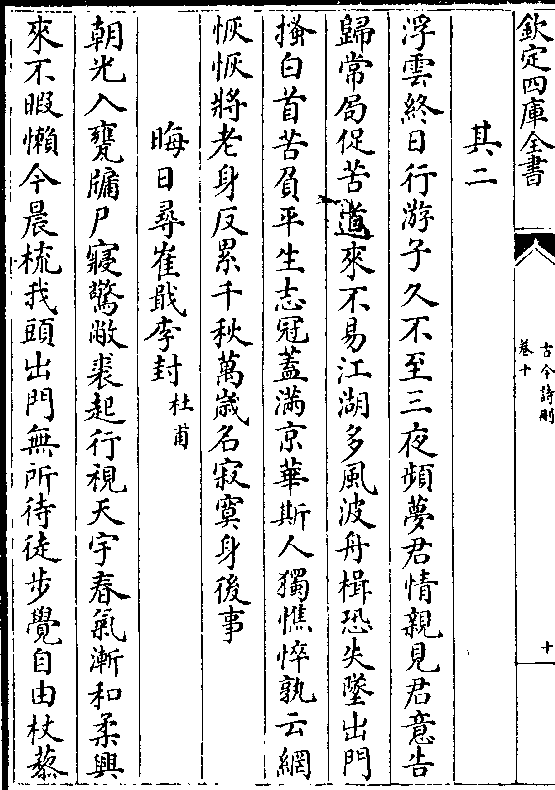 欽定四庫全書
古今詩刪
卷十
十
其二
浮雲終日行游子久不至三夜頻夢君情親見君意告
歸常局促苦道來不易江湖多風波舟楫恐失墜出門
搔白首苦負平生志冠蓋滿京華斯人獨憔悴孰云網
恢恢將老身反累千秋萬歲名寂寞身後事
晦日尋崔戢李封 杜甫
朝光入甕牖尸寢驚敝裘起行視天宇春氣漸和柔興
來不暇懶今晨梳我頭出門無所待徒步覺自由杖藜